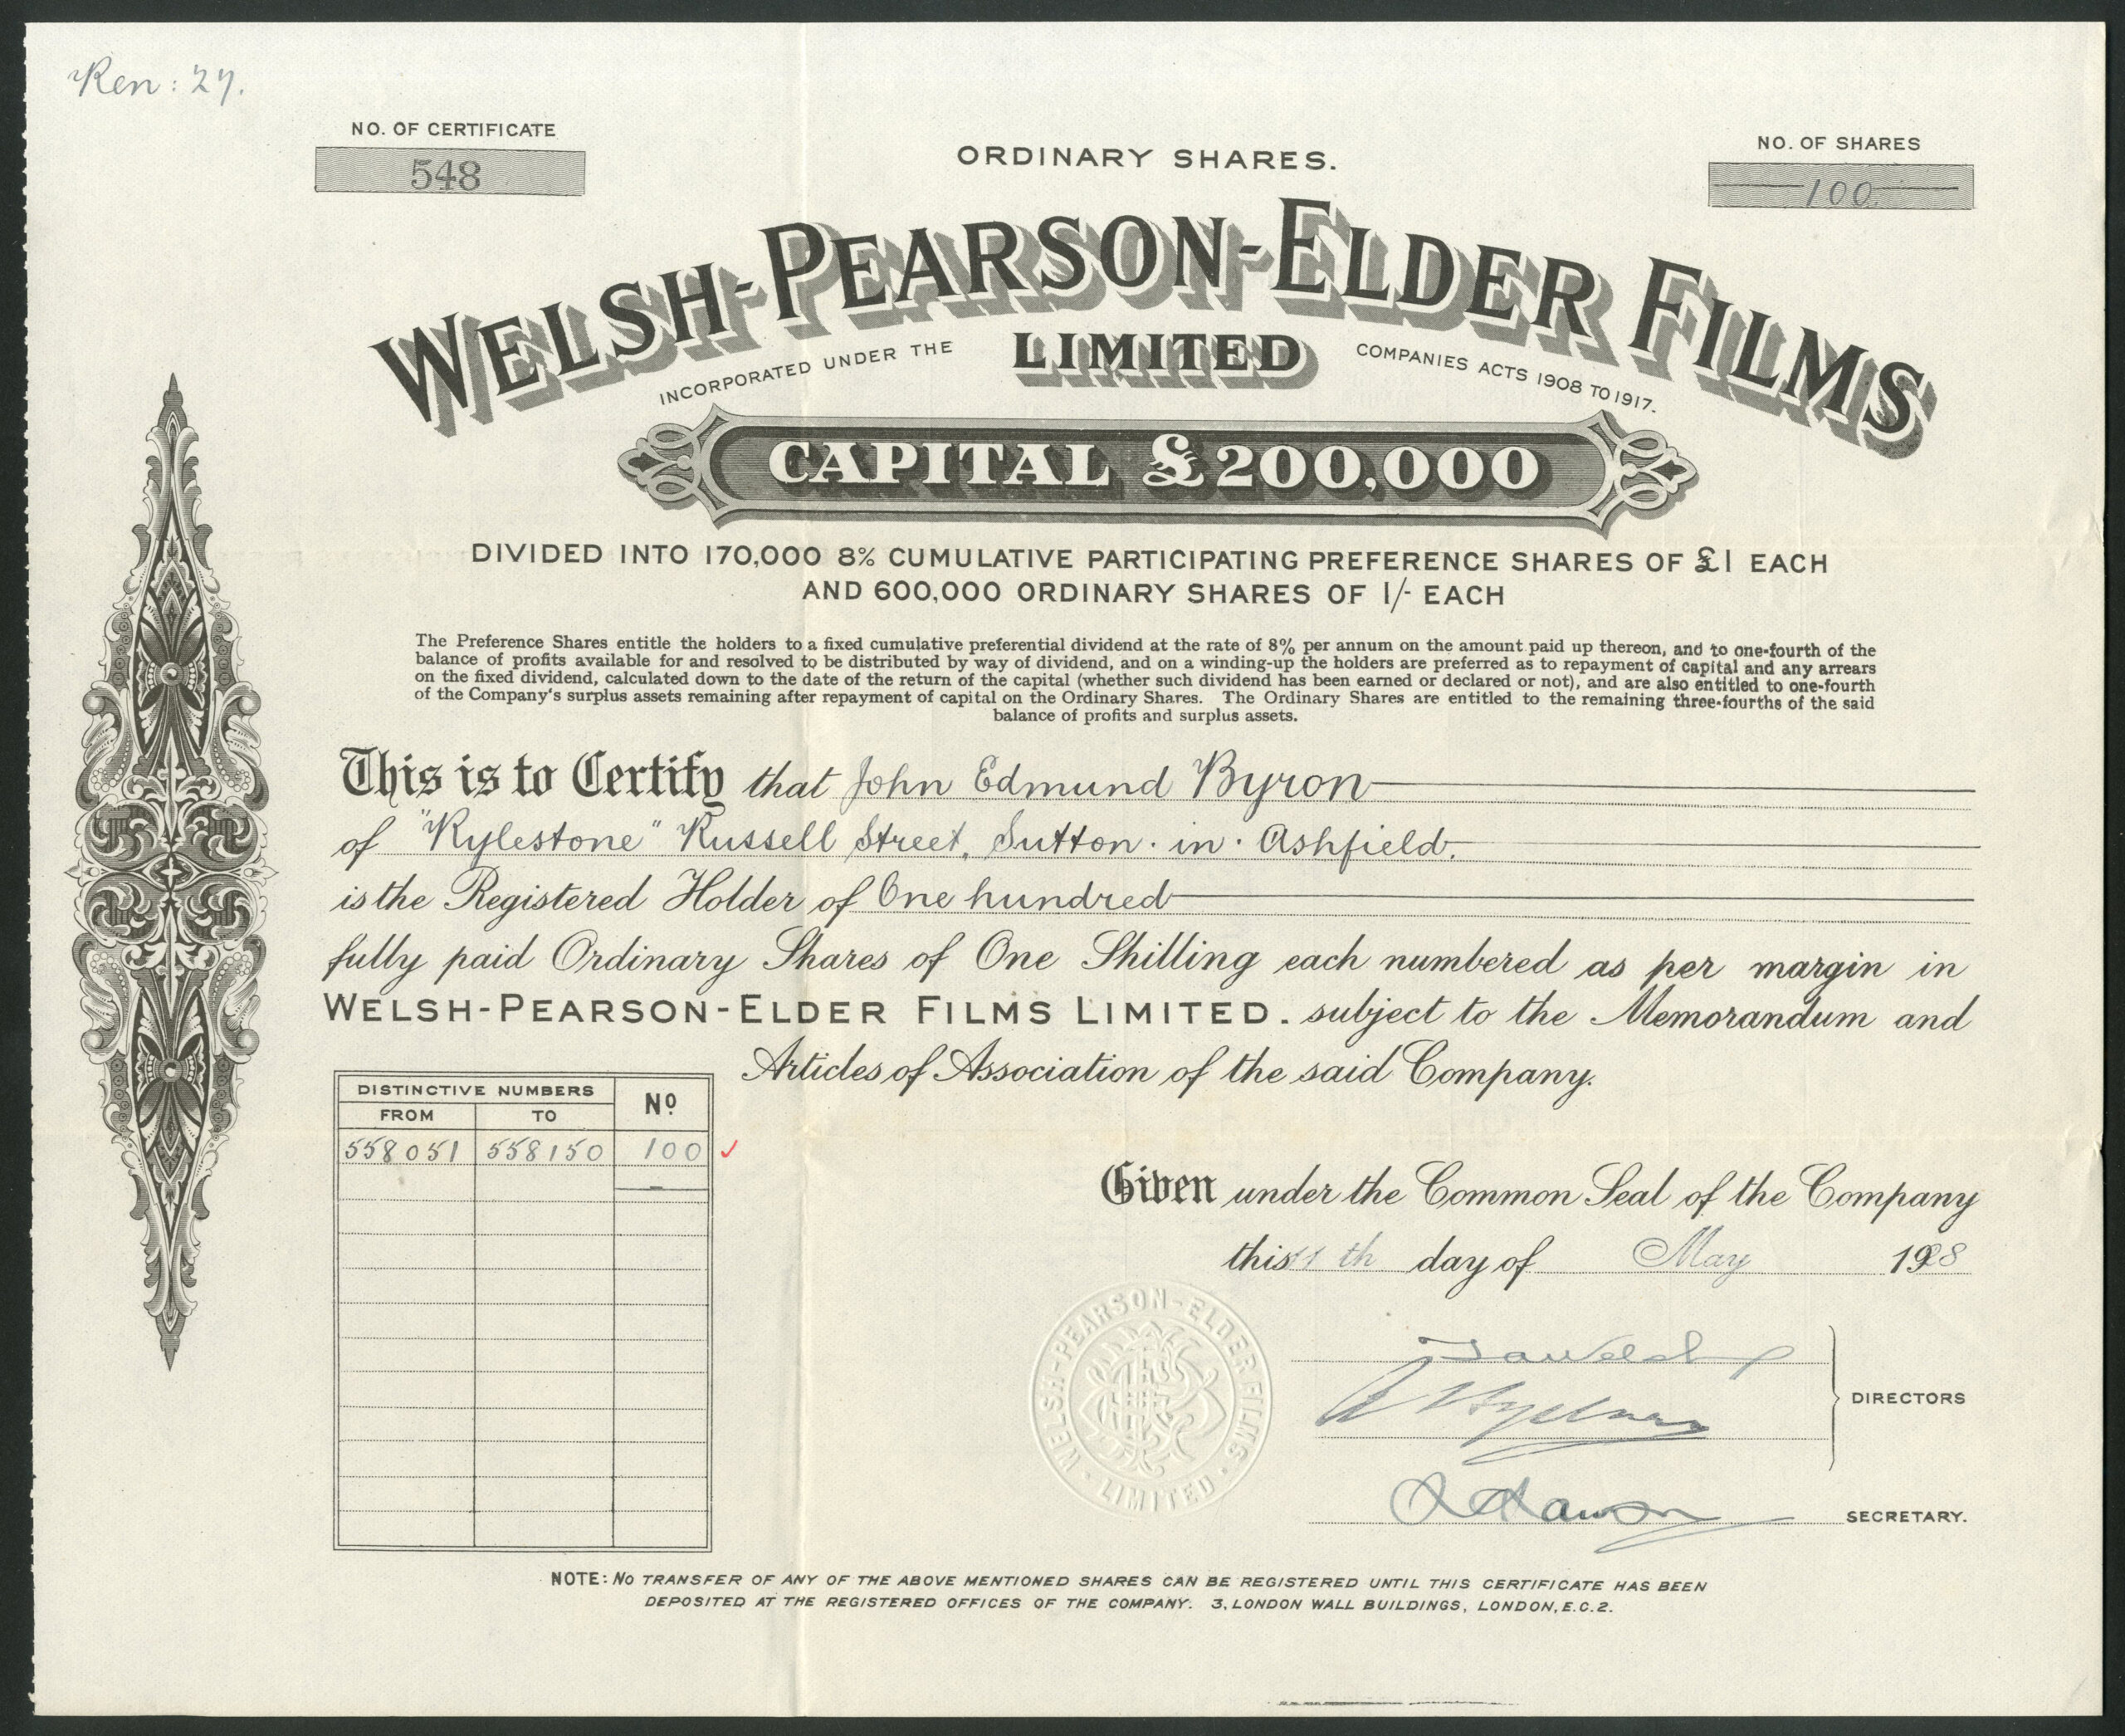 Ren: 27.
NO. OF CERTIFICATE
548
ORDINARY SHARES.
NO. OF SHARES
100
WELSH-PEARSON-ELDER FILMS
INCORPORATED UNDER THE LIMITED COMPANIES ACTS 1908 TO 1917.
CAPITAL £200,000
DIVIDED INTO 170,000 8% CUMULATIVE PARTICIPATING PREFERENCE SHARES OF £1 EACH
AND 600,000 ORDINARY SHARES OF 1/- EACH
The Preference Shares entitle the holders to a fixed cumulative preferential dividend at the rate of 8% per annum on the amount paid up thereon, and to one-fourth of the
balance of profits available for and resolved to be distributed by way of dividend, and on a winding-up the holders are preferred as to repayment of capital and any arrears
on the fixed dividend, calculated down to the date of the return of the capital (whether such dividend has been earned or declared or not), and are also entitled to one-fourth
of the Company's surplus assets remaining after repayment of capital on the Ordinary Shares. The Ordinary Shares are entitled to the remaining three-fourths of the said
balance of profits and surplus assets.
This is to Certify that John Edmund Byron
of "Rylestone" Russell Street, Sutton·in·Ashfield.
is the Registered Holder of One hundred
fully paid Ordinary Shares of One Shilling each numbered as per margin in
WELSH-PEARSON-ELDER FILMS LIMITED. subject to the Memorandum and
Articles of Association of the said Company.
DISTINCTIVE NUMBERS
FROM TO Nº
558051 558150 100
Given under the Common Seal of the Company
this 11th day of May 1928
WELSH-PEARSON-ELDER FILMS · LIMITED ·
DIRECTORS
SECRETARY.
NOTE: NO TRANSFER OF ANY OF THE ABOVE MENTIONED SHARES CAN BE REGISTERED UNTIL THIS CERTIFICATE HAS BEEN
DEPOSITED AT THE REGISTERED OFFICES OF THE COMPANY. 3, LONDON WALL BUILDINGS, LONDON, E.C.2.